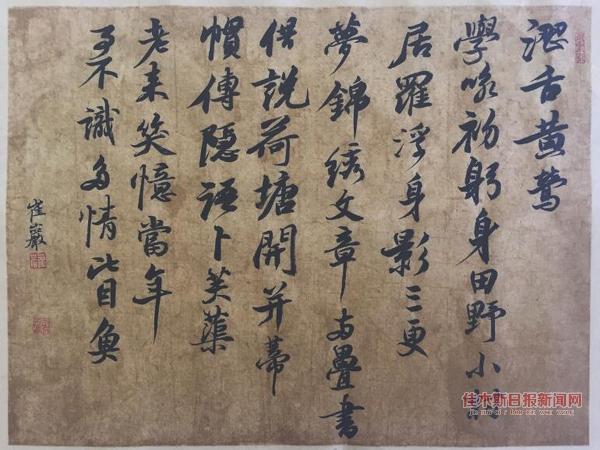 澀舌黄鶯
學咏初躬身田野小
居羅浮身影三更
夢錦綉文章兩疊書
借説荷塘開并蒂
慣傳隱語卜芙蕖
老来笑憶當年
事不識多情比目魚
崔巖
佳木斯日报新闻网